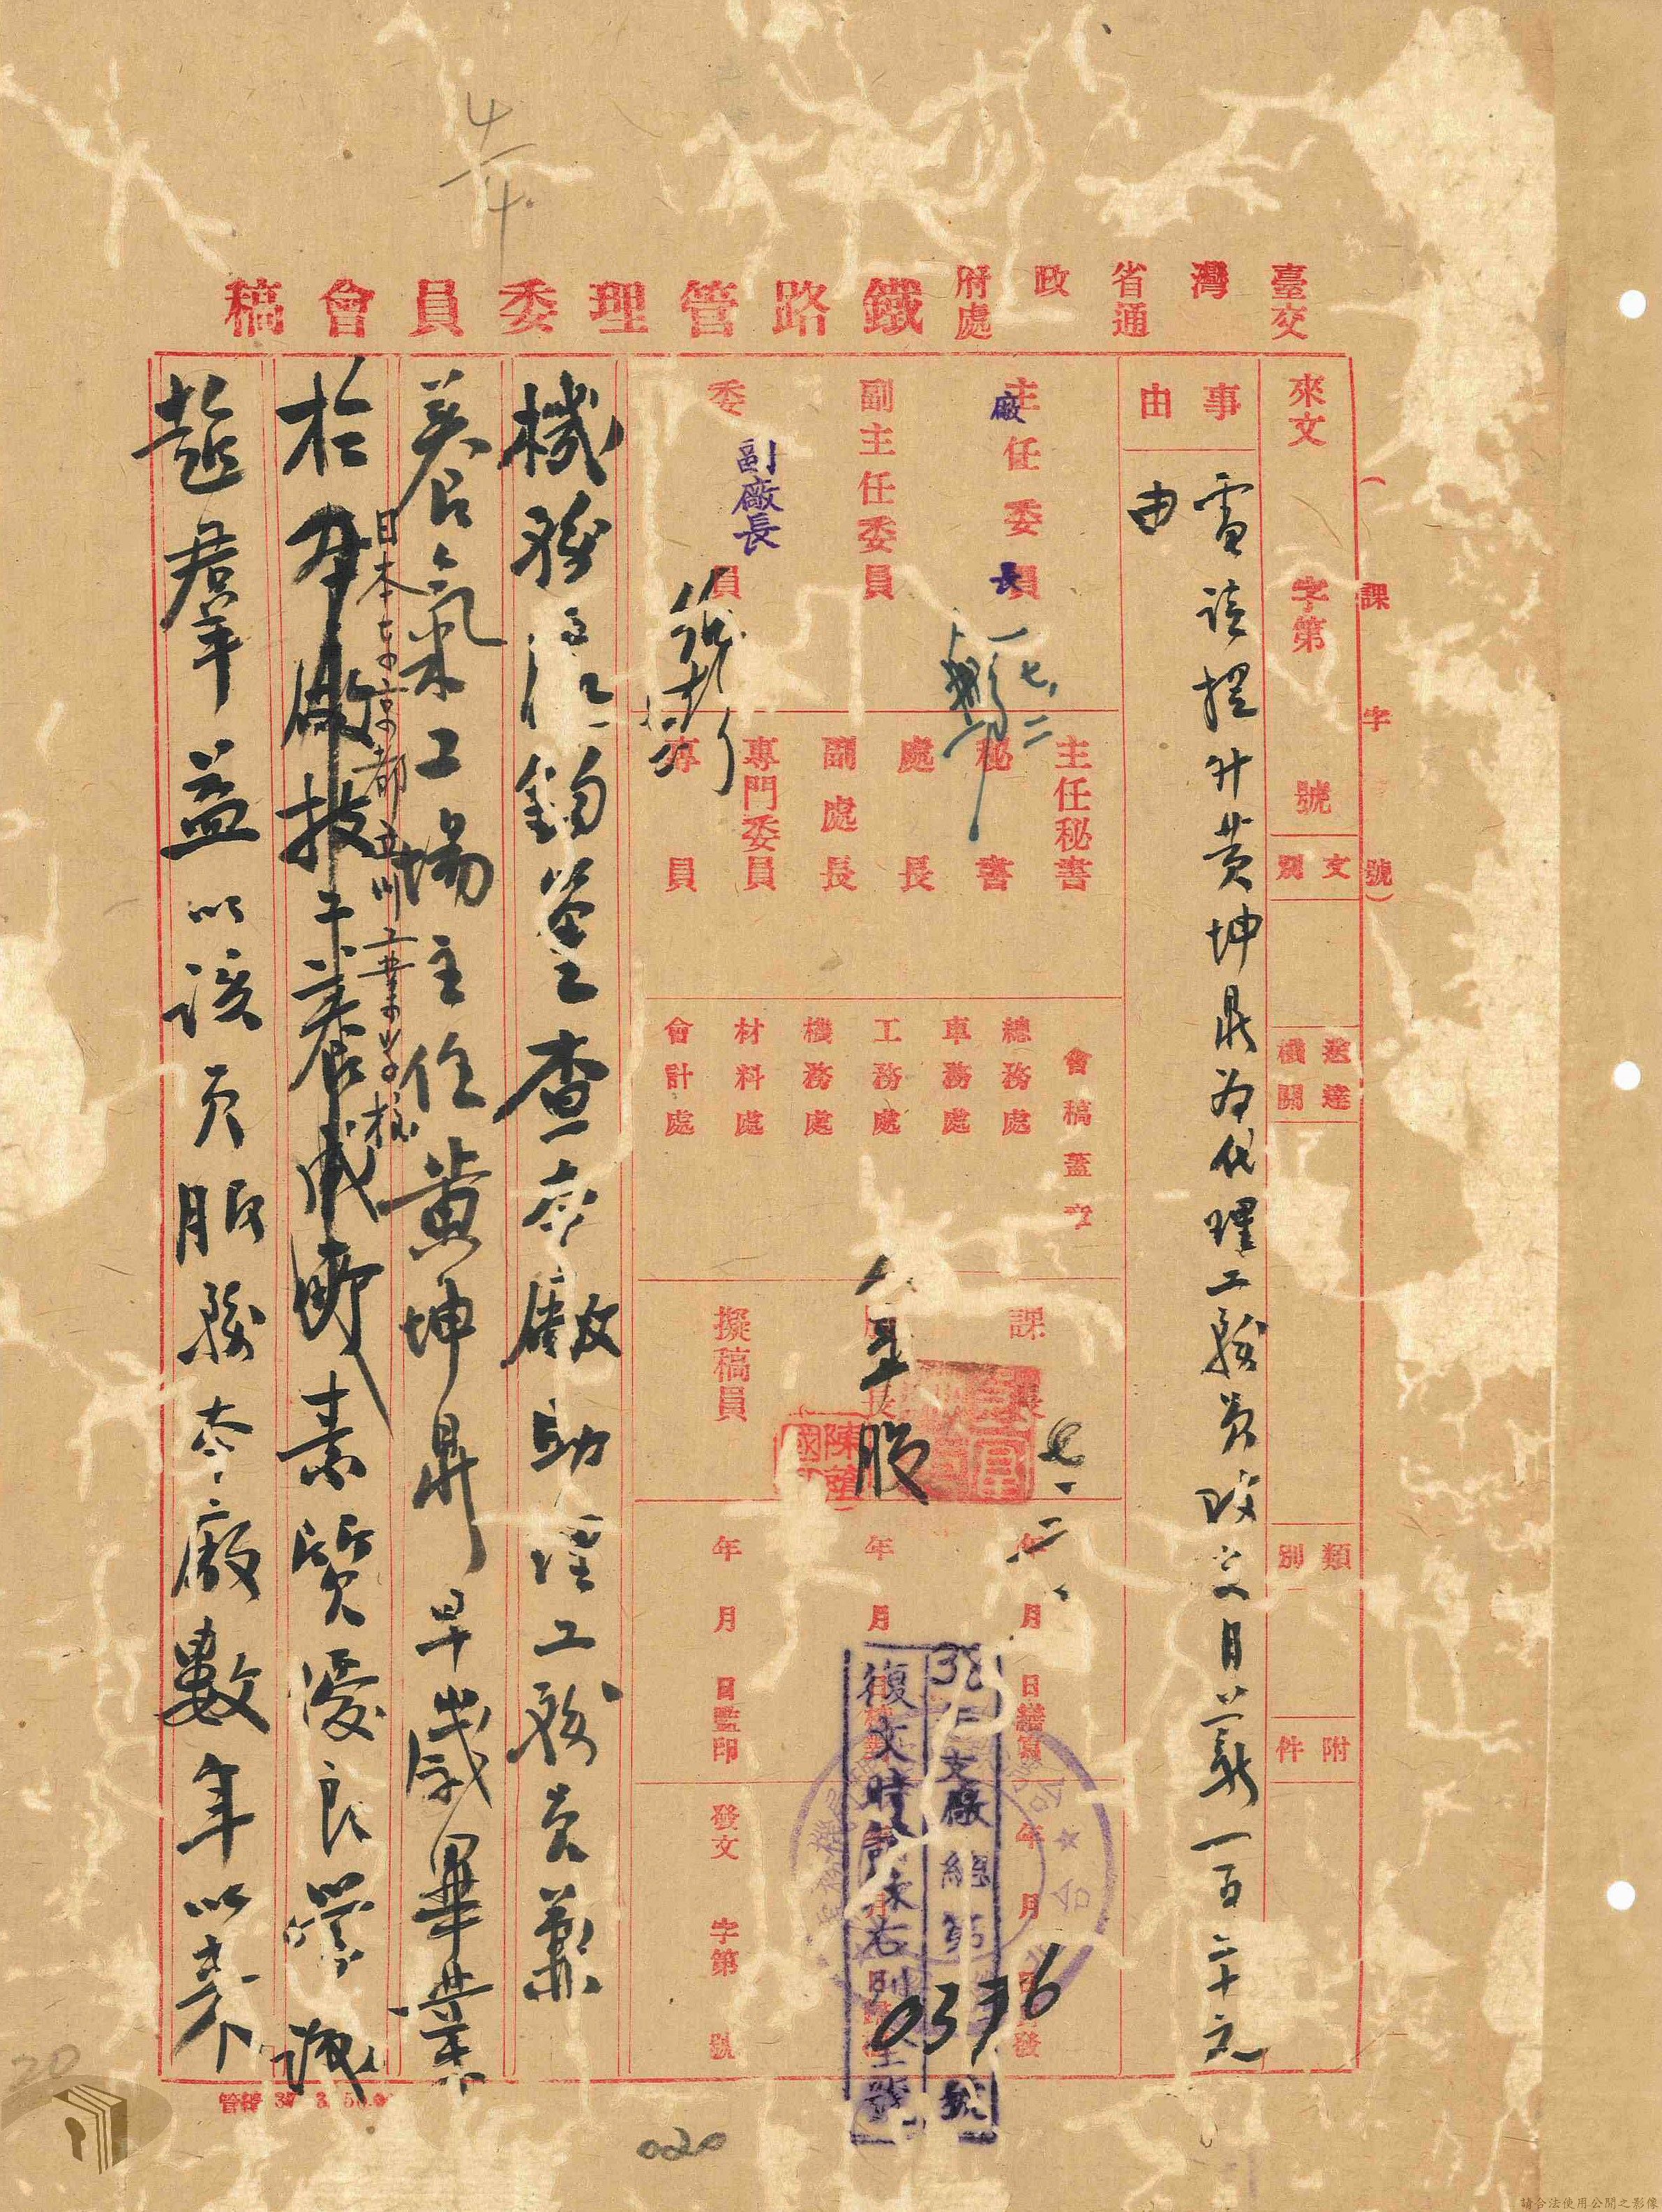 臺灣省政府
交通處
鐵路管理委員會稿
（課字號）
來文 字第 號
文別
送達機關
類別
附件
事由
電請擢升黃坤鼎為代理工務員改支月薪一百二十元
由
主任委員
廠長
七、二
副主任委員
委員
副廠長
主任秘書
秘書
處長
副處長
專門委員
專員
會稿蓋章
總務處
車務處
工務處
機務處
材料處
會計處
課長
股長
擬稿員
人事股
陳
七、二、
年 月 日繕寫
年 月 日校對
年 月 日監印
年 月 日封發
發文 字第 號
復文時請將右列
文廠總第 號
0376
機務處 鈞鑒查本廠助理工務員兼
養氣工場主任黃坤鼎早歲畢業
於日本東京都立川工業學校
本廠技工養成所素質優良學識
超羣益以該員服務本廠數年以來
管稽 37 3 50.0
020
20
請合法使用公開之影像